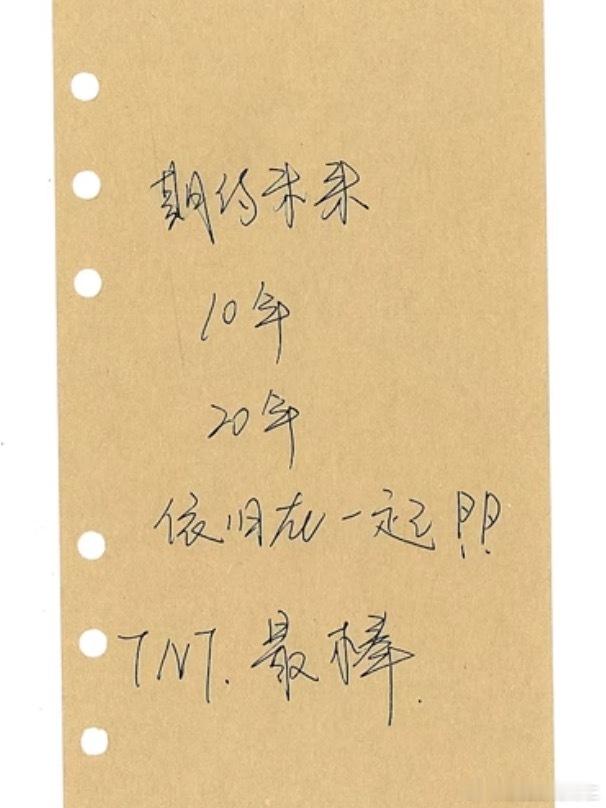 期待未来
10年
20年
依旧在一起!!
TNT.最棒.